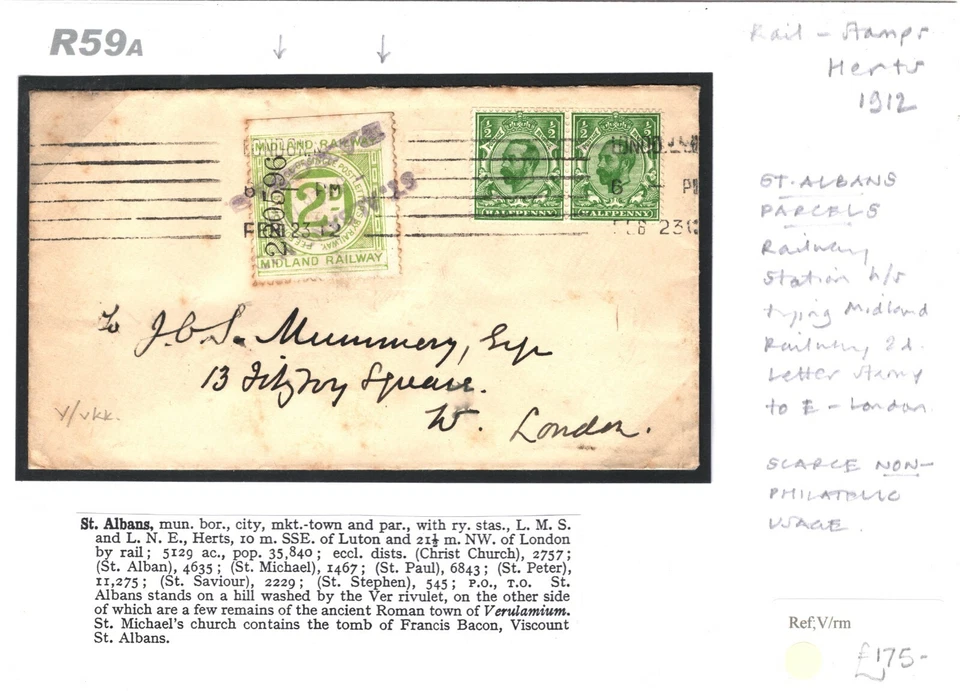 R59A
Rail - Stamps
Herts
1912
MIDLAND RAILWAY
220596
2D
MIDLAND RAILWAY
8
PM
FEB 23 12
½ ½ ½ ½
HALFPENNY HALFPENNY
LONDON
6 PM
FEB 23 12
To J.C.S. Mummery, Esqr
13 Fitzroy Square.
W. London.
v/vkk.
ST. ALBANS
PARCELS
Railway
Station h/s
tying Midland
Railway 2d.
Letter Stamp
to E - London
SCARCE NON-
PHILATELIC
USAGE.
St. Albans, mun. bor., city, mkt.-town and par., with ry. stas., L. M. S.
and L. N. E., Herts, 10 m. SSE. of Luton and 21½ m. NW. of London
by rail; 5129 ac., pop. 35,840; eccl. dists. (Christ Church), 2757;
(St. Alban), 4635; (St. Michael), 1467; (St. Paul), 6843; (St. Peter),
11,275; (St. Saviour), 2229; (St. Stephen), 545; P.O., T.O. St.
Albans stands on a hill washed by the Ver rivulet, on the other side
of which are a few remains of the ancient Roman town of Verulamium.
St. Michael's church contains the tomb of Francis Bacon, Viscount
St. Albans.
Ref,V/rm
£175-